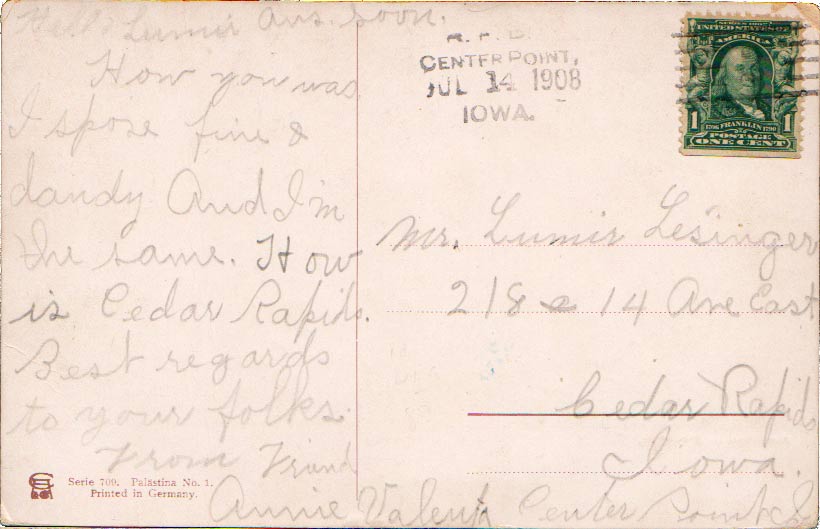 Hello Lumir Ans. soon.
How you was
I spose fine &
dandy And I'm
the same. How
is Cedar Rapids.
Best regards
to your folks.
From Friend
Annie Valenta Center Point
Serie 709. Palästina No. 1.
Printed in Germany.
R. F. D.
CENTER POINT,
JUL 14 1908
IOWA.
SERIES 1902
UNITED STATES OF
AMERICA
1706 FRANKLIN 1790
1 POSTAGE 1
ONE CENT
Mr. Lumir Lesinger
218 14 Ave East
Cedar Rapids
Iowa.